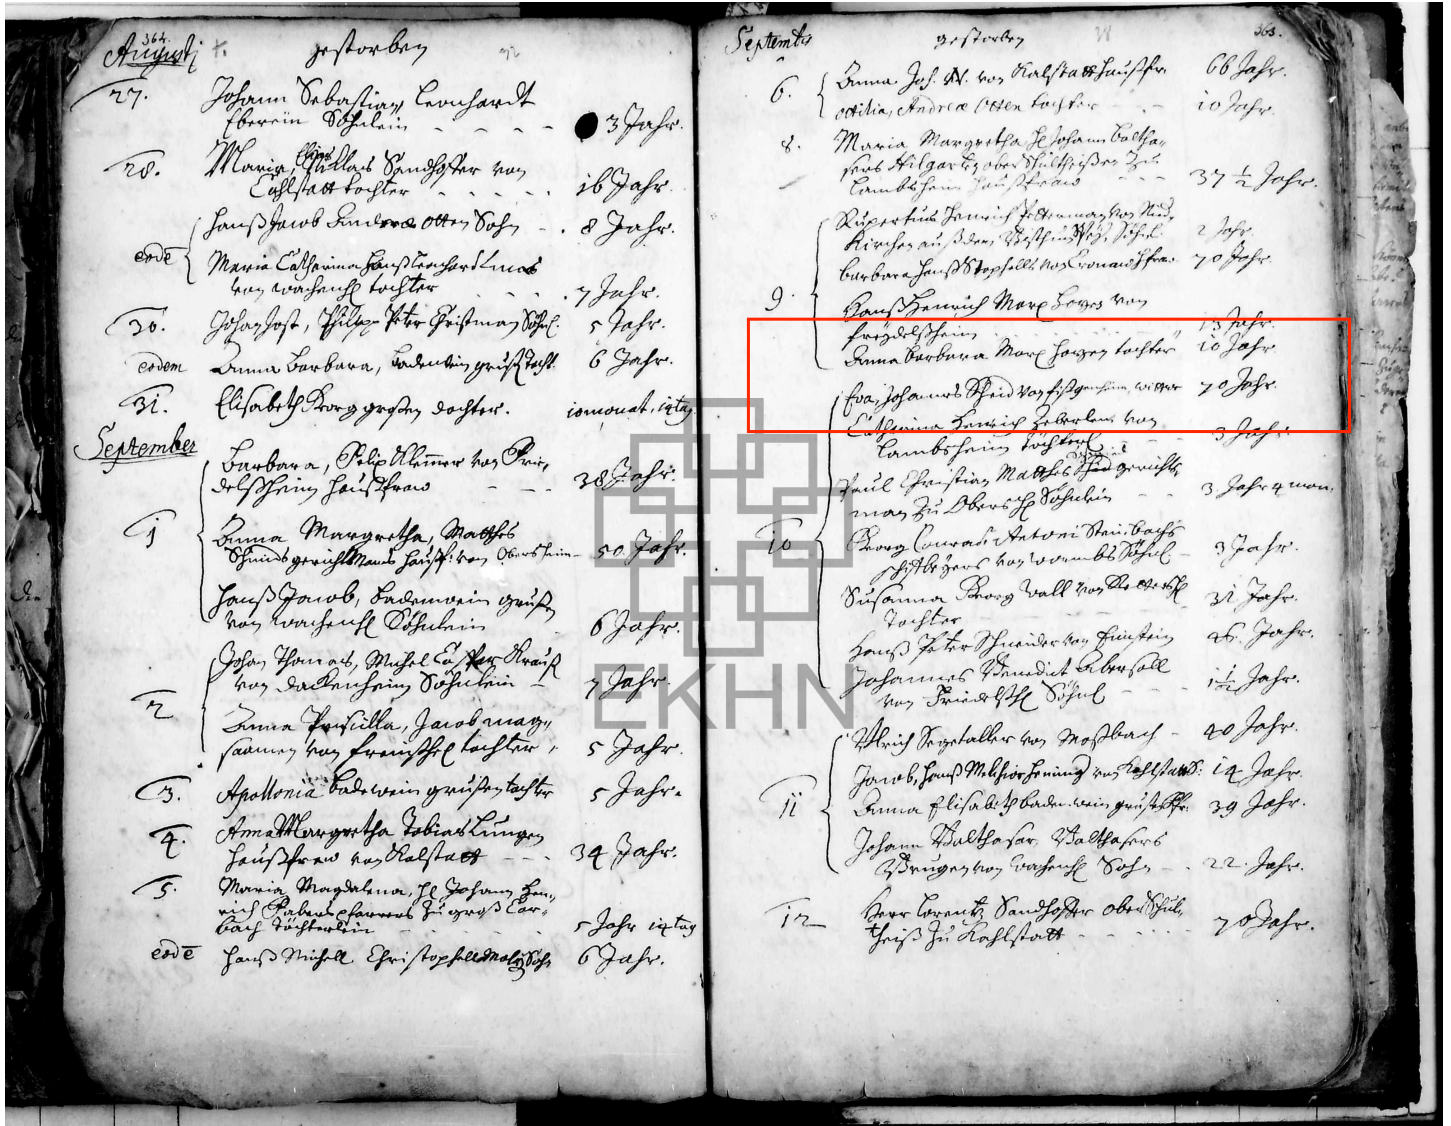 364.
Augusti
gestorben
27.
Johann Sebastian, Leonhardt
Eberein Söhnlein - - - - 3 Jahr.
28.
Maria, Niclas Sandhoffer von
Calstatt tochter - - - 16 Jahr.
hanß Jacob Andreæ Otten Sohn - . 8 Jahr.
eodē
Maria Catharina hanß Leonhard
von wachenh tochter . . . 7 Jahr.
30. Johan Jost, Philipp Peter Christman Söhnl. 5 Jahr.
eodem Anna Barbara, Badenwein grußen tocht. 6 Jahr.
31. Elisabeth Georg großen dochter. 10 monat, 14 tag
September
Barbara, Felix Klemmer von Frie-
delßheim haußfraw - - - 38 Jahr.
1
Anna Margretha, Matthes
Schmids gerichtsMans haußf: von Obersheim - 50 Jahr.
hanß Jacob, badenwein grußen
von wachenh Söhnlein 6 Jahr.
Johan Thomas, Michel Caspar Krauß
von Dackenheim Söhnlein - 7 Jahr.
2
Anna Priscilla, Jacob mag-
saamen von freinsh tochter, 5 Jahr.
3. Apollonia badewein grußen tochter 5 Jahr.
4. Anna Margretha Tobias Lungen
haußfraw von Kalstatt - - - 34 Jahr.
5. Maria Magdalena, H Johann Hen-
rich Fabers pfarrers zu groß Car-
bach töchterlein - - - 5 Jahr 14 tag
eodē hanß Michell Christophell Söhn 6 Jahr.
Septembris
gestorben
365.
6. Anna Joh. W. von Kalstatt haußfr. 66 Jahr.
Ottilia, Andreæ Otten tochter - - - 10 Jahr.
8. Maria Margretha H Johann Baltha-
sers Hilgart oberschultheißen zu
Lambsheim haußfraw - - 37 ½ Jahr.
Rupertus Henrich Petterman von
Kirchen auß dem Söhnl 2 Jahr.
barbara hanß Stophells von Cronaw 70 Jahr.
9.
Hanß Henrich Marx von
freydelßheim 13 Jahr.
Anna barbara Marx tochter 10 Jahr.
Eva, Johannes Scheid von Eißgenheim, wittwe 70 Jahr.
Catharina Henrich Heberlen von
Lambsheim töchterl 3 Jahr.
Paul Christian Matthes Schmid gerichts
man zu Obersh Söhnlein - - 3 Jahr 4 mon.
10
Georg Conrad Antoni Steinbachs
von wormbs Söhnl - 3 Jahr.
Susanna Georg Wall von
Tochter 31 Jahr.
Hanß Peter Schneider von Einstein 26. Jahr.
Johannes Benedict Ebersoll
von Friedelsh Söhnl - - - 1 ½ Jahr.
Ulrich Segetaller von Moßbach - 40 Jahr.
Jacob, Hanß Melchior Hening von Kahlstatt S: 14 Jahr.
11
Anna Elisabeth badenwein grußen 39 Jahr.
Johann Balthasar, Balthasers
von wachenh Sohn - . 22. Jahr.
12 Herr Lorentz Sandhoffer ober Schul-
theiß zu Kahlstatt - - - - - 70 Jahr.
EKHN